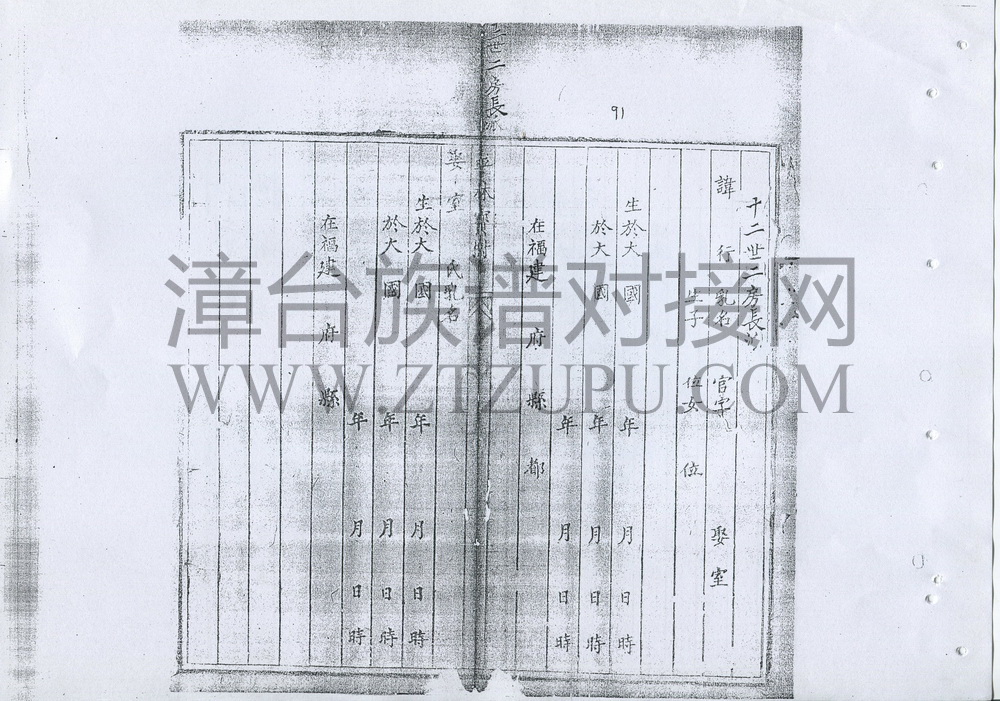 91
十二世二房長派
諱 行 乳名 官字 娶室
生子 位女 位
生於大 國 年 月 日 時
於大 國 年 月 日 時
年 月 日 時
在福建 府 縣 都
世二房長派
娶室 氏乳名
生於大 國 年 月 日 時
於大 國 年 月 日 時
年 月 日 時
在福建 府 縣
漳台族谱对接网
WWW.ZTZUPU.COM